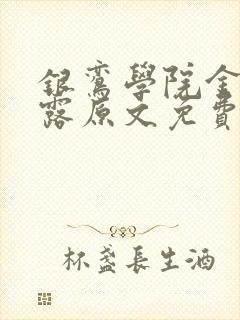 銀鸞學院金
露原文免費
杯盞長生酒